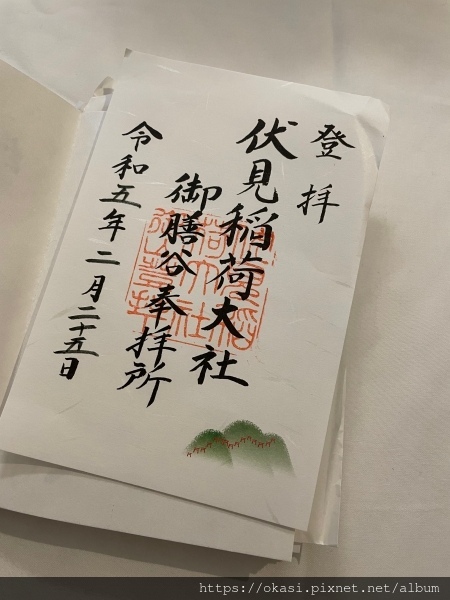 登拝
伏見稲荷大社
御膳谷奉拝所
令和五年二月二十五日
https://okasi.pixnet.net/album